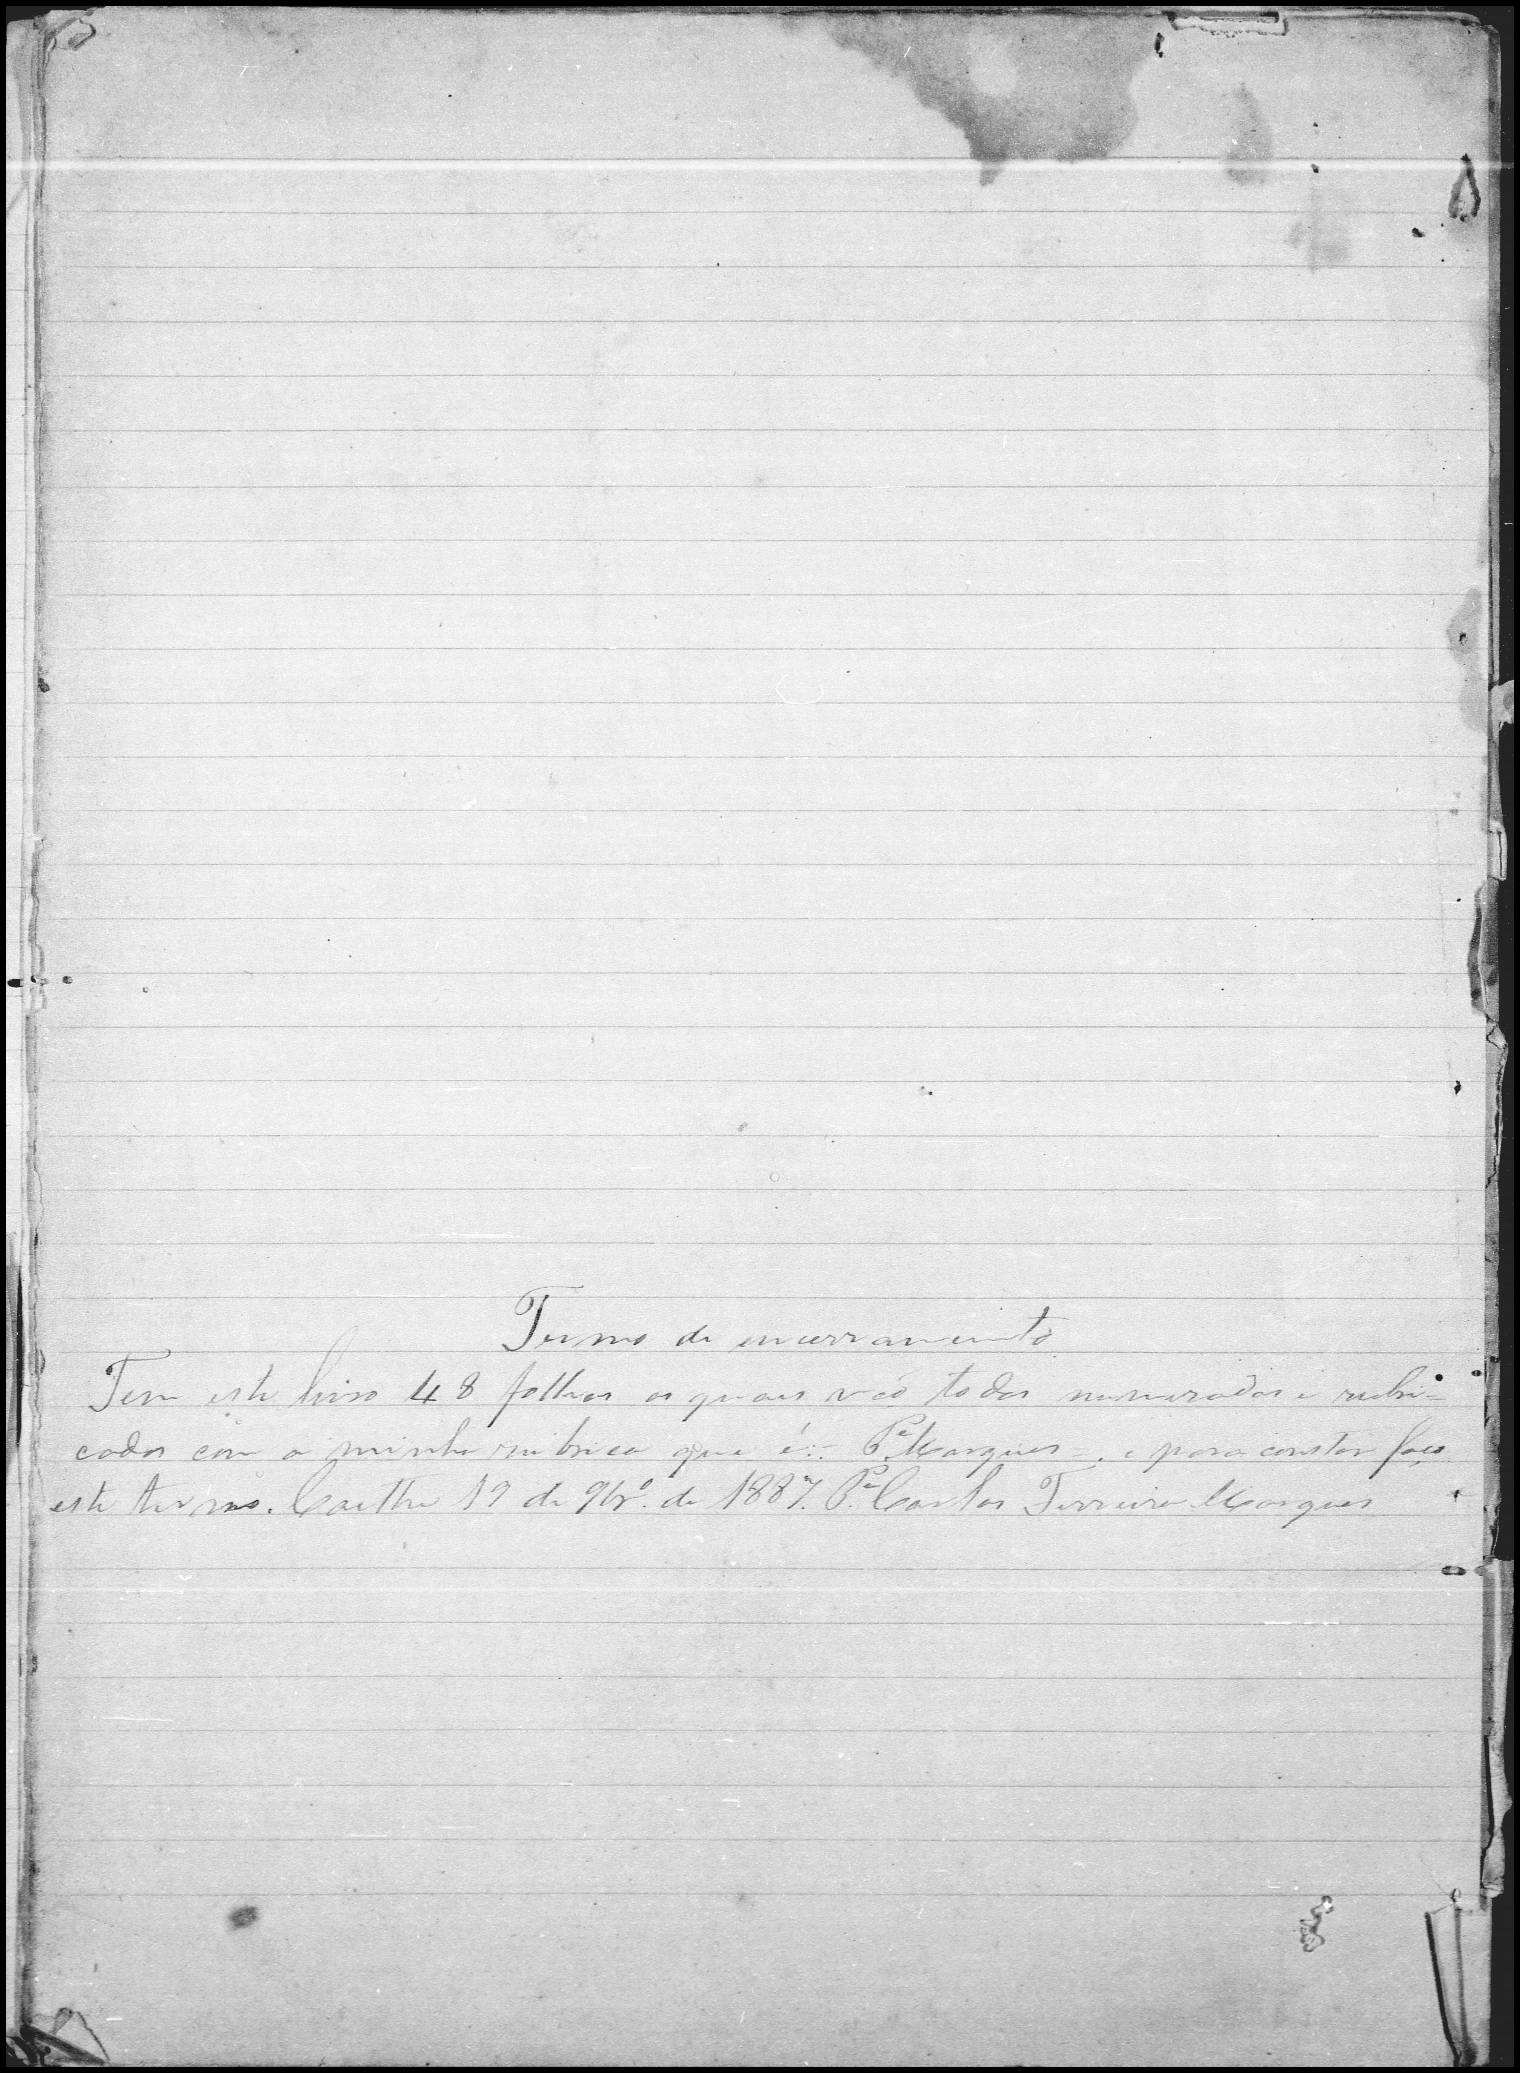 Termo de encerramento
Tem este livro 48 folhas as quaes vão todas numeradas e rubri=
cadas com a minha rubrica que é:- Pe Marques =, e para constar faço
este termo. Caethe 19 de 9bro. de 1887. Pe. Carlos Ferreira Marques